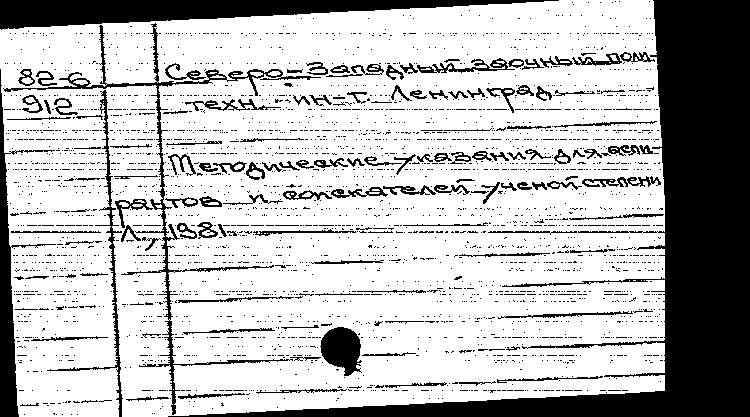 82-6 Северо-Западный заочный поли-
912 техн. ин-т. Ленинград.
Методические указания для аспи-
рантов и соискателей ученой степени
Л., 1981.